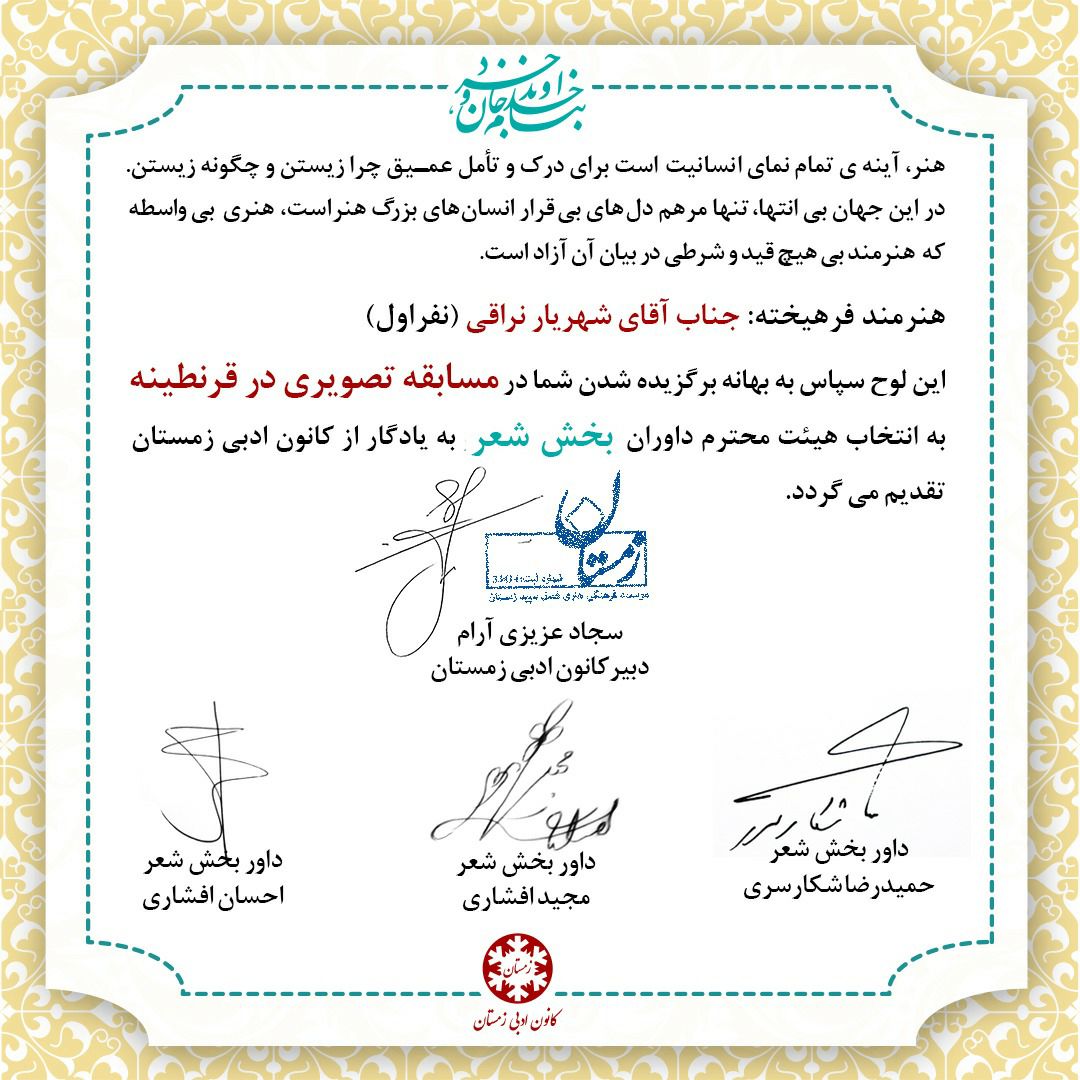 بنام خداوند جان و خرد
هنر، آینه ی تمام نمای انسانیت است برای درک و تأمل عمـیق چرا زیستن و چگونه زیستن.
در این جهان بی انتها، تنها مرهم دل‌های بی قرار انسان‌های بزرگ هنر است، هنری بی واسطه
که هنرمند بی هیچ قید و شرطی در بیان آن آزاد است.
هنرمند فرهیخته: جناب آقای شهریار نراقی (نفر اول)
این لوح سپاس به بهانه برگزیده شدن شما در مسابقه تصویری در قرنطینه
به انتخاب هیئت محترم داوران بخش شعر به یادگار از کانون ادبی زمستان
تقدیم می گردد.
زمستان
شماره ثبت:
موسسه فرهنگی هنری فصل سپید زمستان
سجاد عزیزی آرام
دبیر کانون ادبی زمستان
داور بخش شعر
حمیدرضا شکارسری
داور بخش شعر
مجید افشاری
داور بخش شعر
احسان افشاری
زمستان
کانون ادبی زمستان